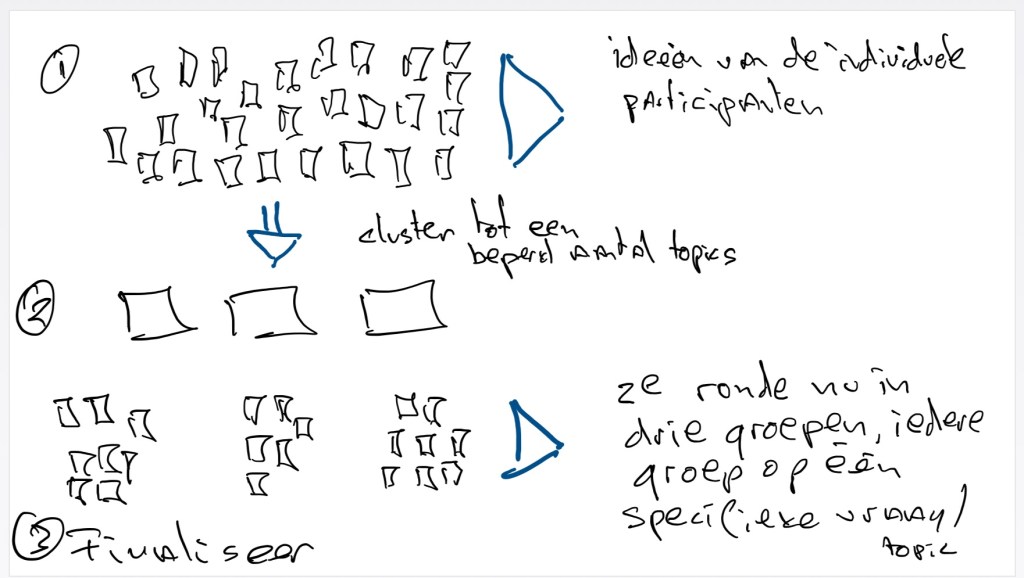 ①
ideeën van de individuele
participanten
cluster tot een
beperkt aantal topics
②
2e ronde nu in
drie groepen, iedere
groep op één
specifieke vraag/
topic
③ Finaliseer